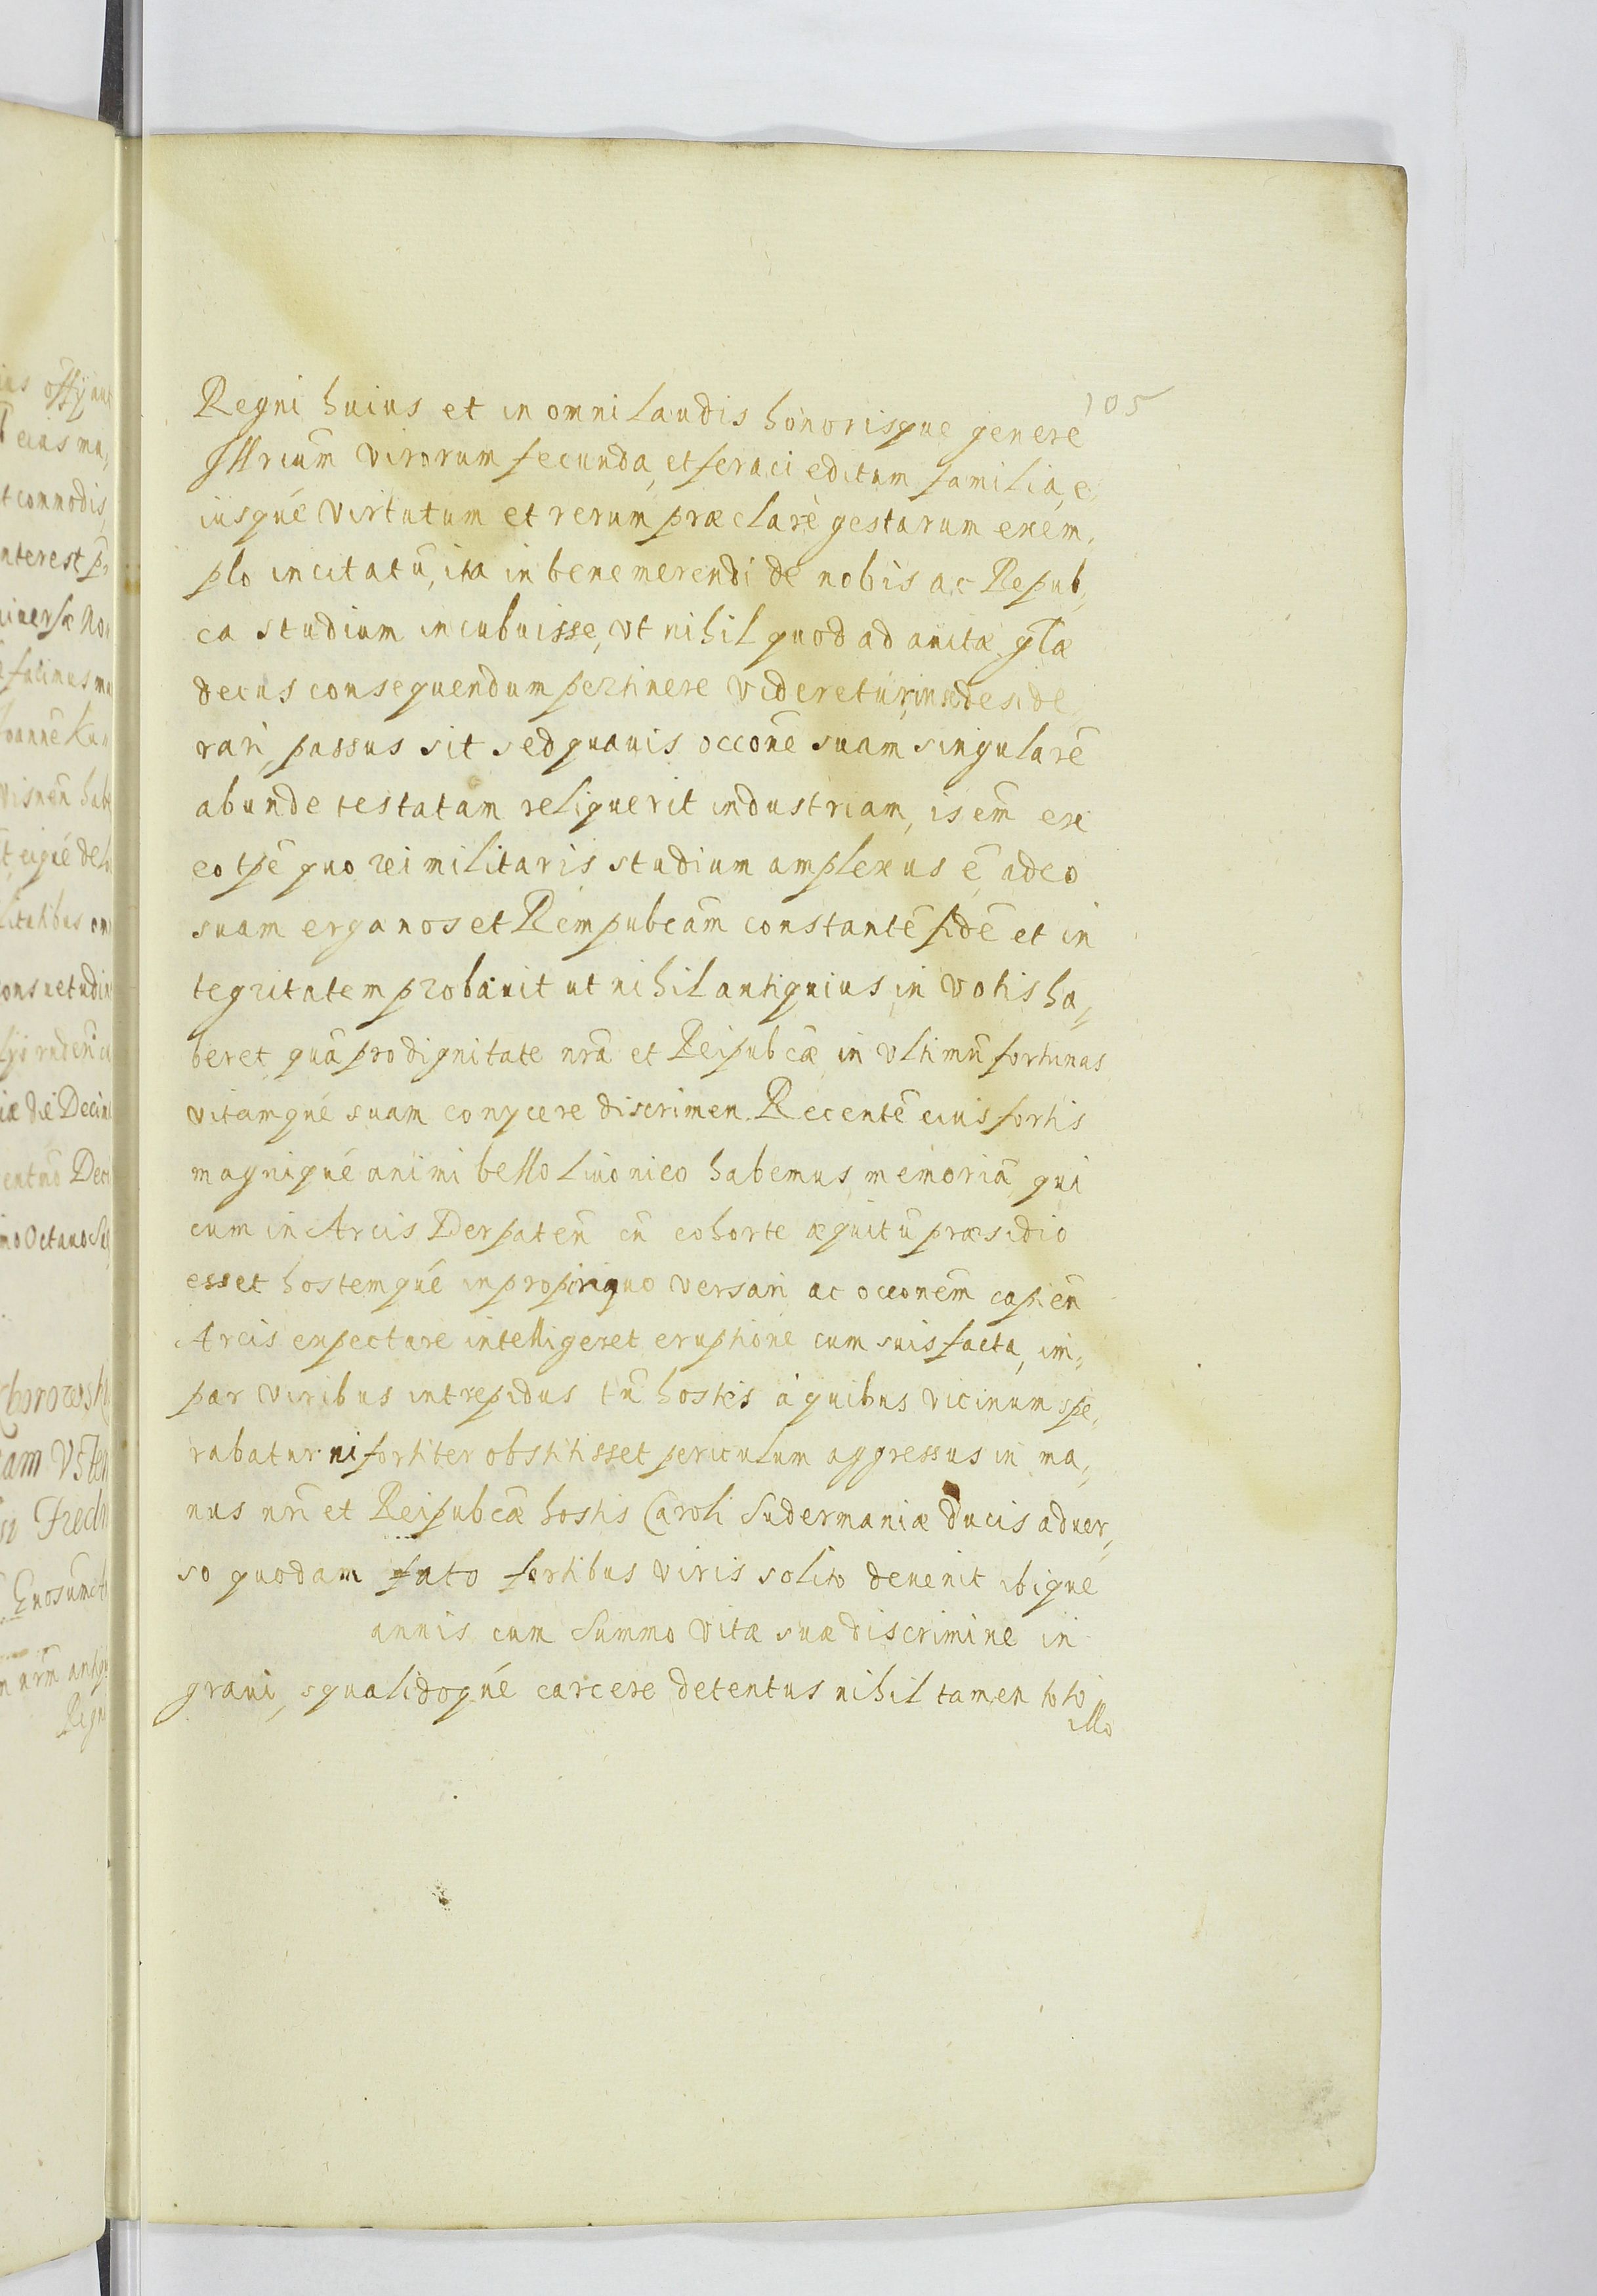 105
Regni huius et in omni laudis honorisque genere
Illrium virorum fecunda, et feraci editum familia, e,
iusque virtutum et rerum præclare gestarum exem,
plo incitatū, ita in bene merendi de nobis ac Repub,
ca studium incubuisse, vt nihil quod ad auitæ glæ
decus consequendum pertinere videretur, in se deside
rari, passus sit sed quauis occōne suam singularē
abunde testatam reliquerit industriam, is em̄ ex
eo tpē quo rei militaris studium amplexus ē, adeo
suam erga nos et Rempubcām constantē fidē et in
tegritatem probauit ut nihil antiquius in votis ha,,
beret, quā pro dignitate nrā et Reipubcæ in vltimū fortunas
vitamqué suam conycere discrimen. Recentē eius fortis
magniqué animi bello Liuonico habemus memoriā, qui
cum in Arcis Derpaten̄ cū cohorte æquitū præsidio
esset hostemqué in propinquo versari ac occonem̄ capien̄
Arcis expectare intelligeret eruptione cum suis facta, im,,
par viribus intrepidus tn̄ hostes á quibus vicinum spe,
rabatur ni fortiter obstitisset periculum aggressus in ma,,
nus nr̄i et Reipubcæ hostis Caroli Sudermaniæ Ducis aduer,,
so quodam fato fortibus viris solito deuenit ibique
annis cum summo vitæ suæ discrimine in
graui, squalidoqué carcere detentus nihil tamen toto
illo